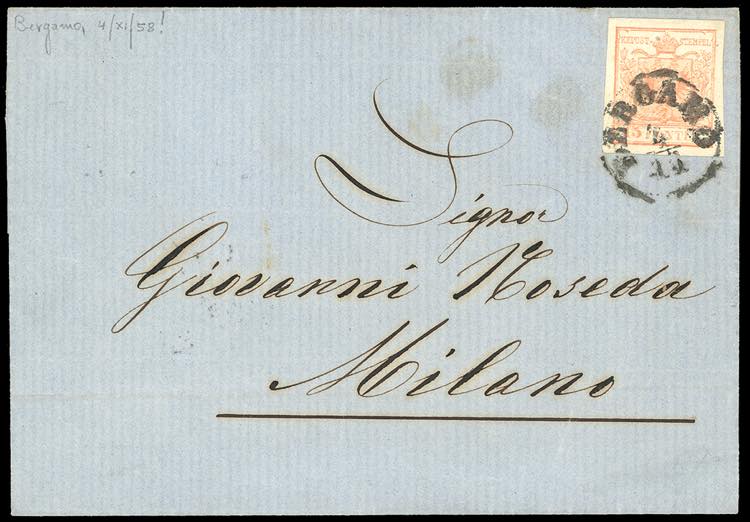 Bergamo, 4/XI/58!
K.K.POST-STEMPEL
BERGAMO
4
11
CENTES
Signor
Giovanni Noseda
Milano